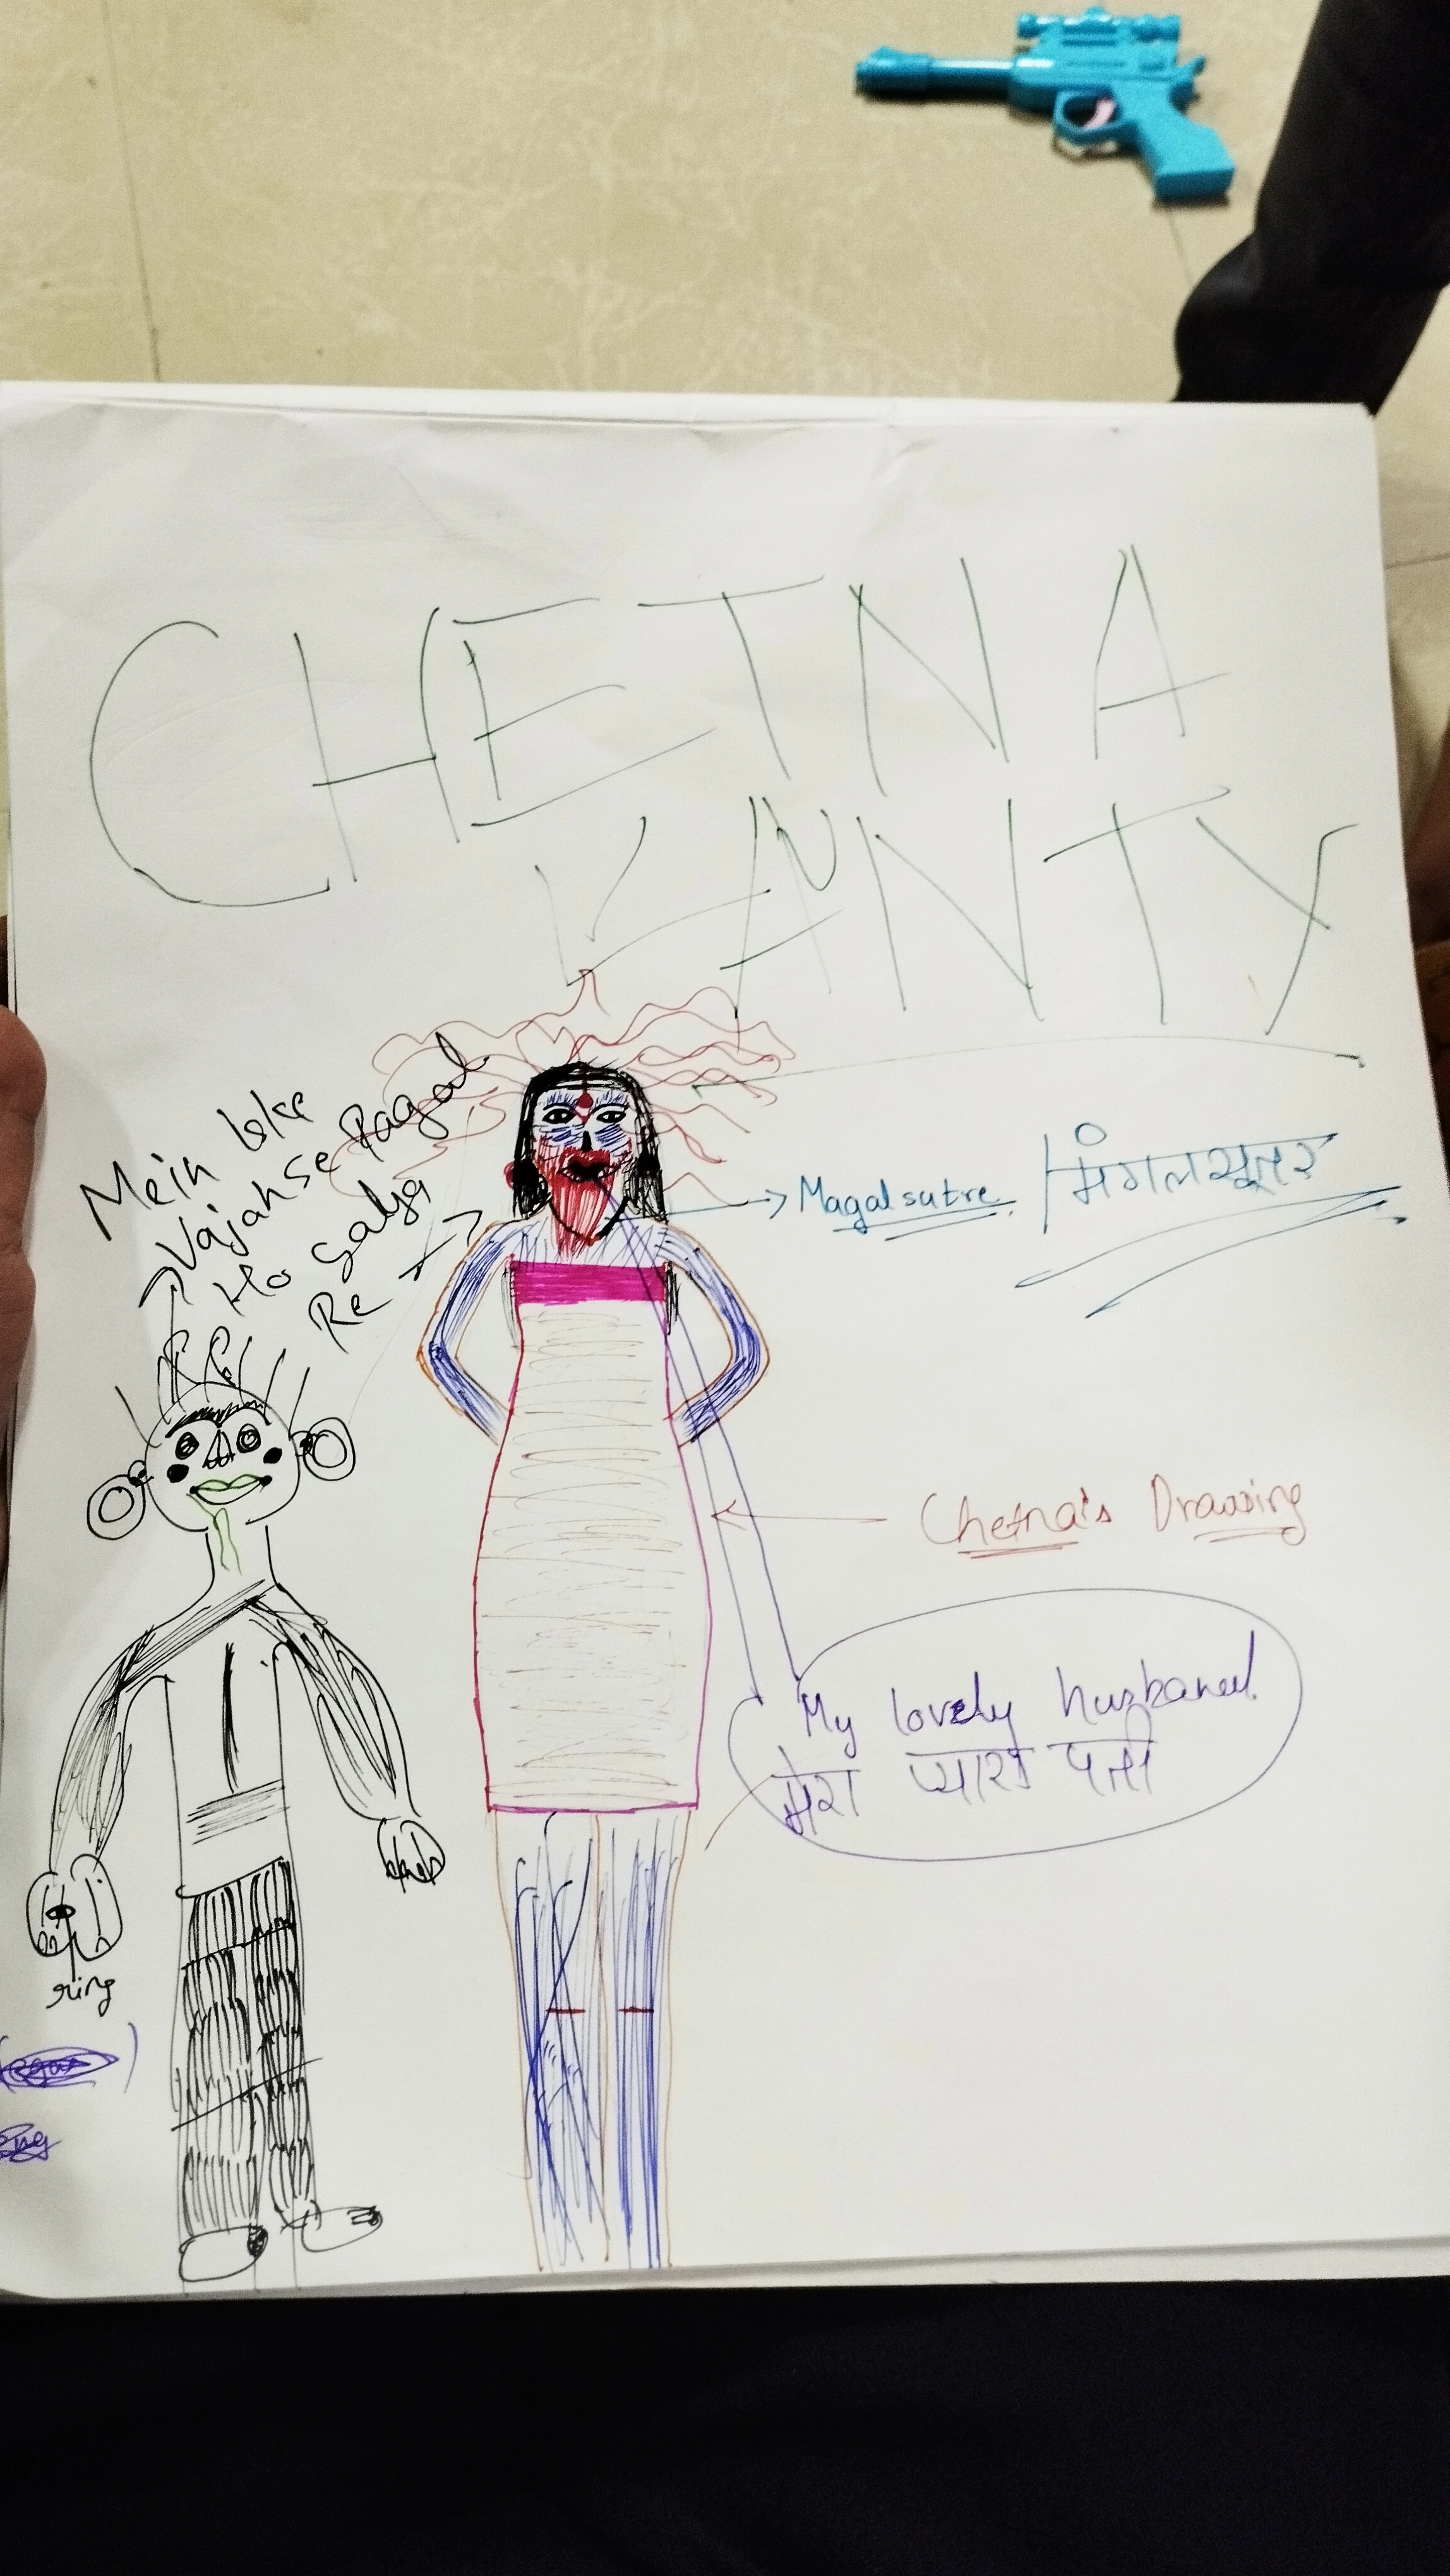 CHETNA
AANTY
Mein Iske
Vajah se Pagal
Ho Gaya
Re
Magalsutre
मंगलसूत्र
Chetna's Drawing
My lovely husbaned.
मेरा प्यारा पती
ring